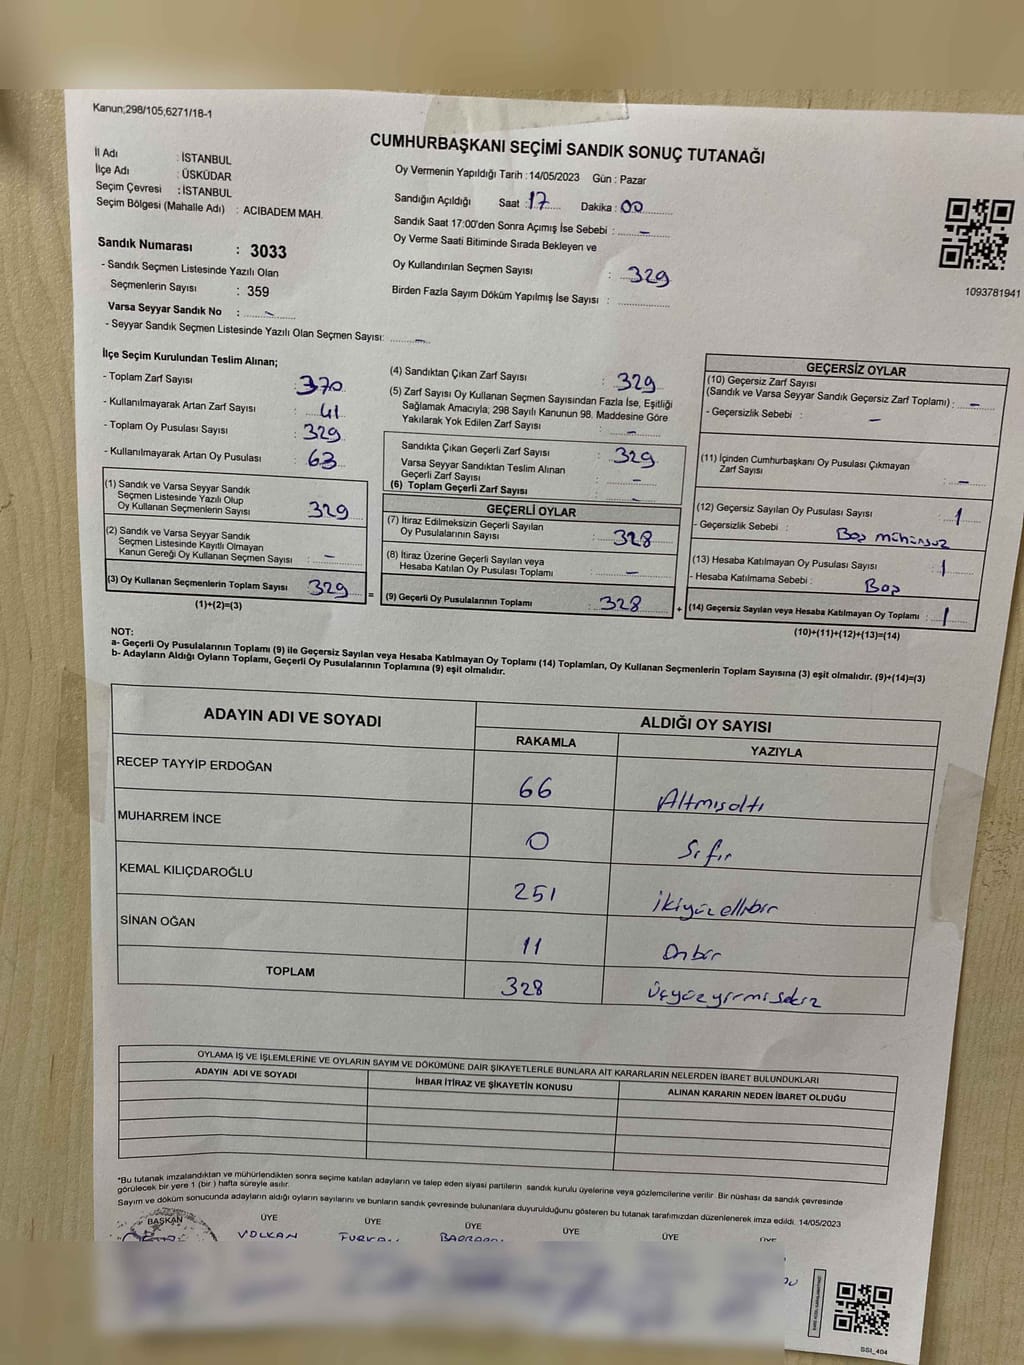 Kanun;298/105,6271/18-1
CUMHURBAŞKANI SEÇİMİ SANDIK SONUÇ TUTANAĞI
İl Adı : İSTANBUL
İlçe Adı : ÜSKÜDAR
Seçim Çevresi : İSTANBUL
Seçim Bölgesi (Mahalle Adı) : ACIBADEM MAH.
Oy Vermenin Yapıldığı Tarih : 14/05/2023 Gün : Pazar
Sandığın Açıldığı Saat : 17 Dakika : 00
Sandık Saat 17:00'den Sonra Açımış İse Sebebi : -
Oy Verme Saati Bitiminde Sırada Bekleyen ve
Oy Kullandırılan Seçmen Sayısı : 329
Birden Fazla Sayım Döküm Yapılmış İse Sayısı :
1093781941
Sandık Numarası : 3033
- Sandık Seçmen Listesinde Yazılı Olan
Seçmenlerin Sayısı : 359
Varsa Seyyar Sandık No : -
- Seyyar Sandık Seçmen Listesinde Yazılı Olan Seçmen Sayısı: -
İlçe Seçim Kurulundan Teslim Alınan;
- Toplam Zarf Sayısı : 370
- Kullanılmayarak Artan Zarf Sayısı : 41
- Toplam Oy Pusulası Sayısı : 329
- Kullanılmayarak Artan Oy Pusulası : 63
(1) Sandık ve Varsa Seyyar Sandık
Seçmen Listesinde Yazılı Olup
Oy Kullanan Seçmenlerin Sayısı : 329
(2) Sandık ve Varsa Seyyar Sandık
Seçmen Listesinde Kayıtlı Olmayan
Kanun Gereği Oy Kullanan Seçmen Sayısı : -
(3) Oy Kullanan Seçmenlerin Toplam Sayısı : 329 =
(1)+(2)=(3)
(4) Sandıktan Çıkan Zarf Sayısı : 329
(5) Zarf Sayısı Oy Kullanan Seçmen Sayısından Fazla İse, Eşitliği
Sağlamak Amacıyla; 298 Sayılı Kanunun 98. Maddesine Göre
Yakılarak Yok Edilen Zarf Sayısı : -
Sandıkta Çıkan Geçerli Zarf Sayısı : 329
Varsa Seyyar Sandıktan Teslim Alınan
Geçerli Zarf Sayısı : -
(6) Toplam Geçerli Zarf Sayısı : -
GEÇERLİ OYLAR
(7) İtiraz Edilmeksizin Geçerli Sayılan
Oy Pusulalarının Sayısı : 328
(8) İtiraz Üzerine Geçerli Sayılan veya
Hesaba Katılan Oy Pusulası Toplamı : -
(9) Geçerli Oy Pusulalarının Toplamı : 328 +
GEÇERSİZ OYLAR
(10) Geçersiz Zarf Sayısı
(Sandık ve Varsa Seyyar Sandık Geçersiz Zarf Toplamı) : -
- Geçersizlik Sebebi : -
(11) İçinden Cumhurbaşkanı Oy Pusulası Çıkmayan
Zarf Sayısı : -
(12) Geçersiz Sayılan Oy Pusulası Sayısı : 1
- Geçersizlik Sebebi : Boş mühürsüz
(13) Hesaba Katılmayan Oy Pusulası Sayısı : 1
- Hesaba Katılmama Sebebi : Boş
(14) Geçersiz Sayılan veya Hesaba Katılmayan Oy Toplamı : 1
(10)+(11)+(12)+(13)=(14)
NOT:
a- Geçerli Oy Pusulalarının Toplamı (9) ile Geçersiz Sayılan veya Hesaba Katılmayan Oy Toplamı (14) Toplamları, Oy Kullanan Seçmenlerin Toplam Sayısına (3) eşit olmalıdır. (9)+(14)=(3)
b- Adayların Aldığı Oyların Toplamı, Geçerli Oy Pusulalarının Toplamına (9) eşit olmalıdır.
ADAYIN ADI VE SOYADI ALDIĞI OY SAYISI
RAKAMLA YAZIYLA
RECEP TAYYİP ERDOĞAN 66 Altmışaltı
MUHARREM İNCE 0 Sıfır
KEMAL KILIÇDAROĞLU 251 ikiyüzellibir
SİNAN OĞAN 11 Onbir
TOPLAM 328 üçyüzyirmisekiz
OYLAMA İŞ VE İŞLEMLERİNE VE OYLARIN SAYIM VE DÖKÜMÜNE DAİR ŞİKAYETLERLE BUNLARA AİT KARARLARIN NELERDEN İBARET BULUNDUKLARI
ADAYIN ADI VE SOYADI İHBAR İTİRAZ VE ŞİKAYETİN KONUSU ALINAN KARARIN NEDEN İBARET OLDUĞU
*Bu tutanak imzalandıktan ve mühürlendikten sonra seçime katılan adayların ve talep eden siyasi partilerin sandık kurulu üyelerine veya gözlemcilerine verilir. Bir nüshası da sandık çevresinde
görülecek bir yere 1 (bir ) hafta süreyle asılır.
Sayım ve döküm sonucunda adayların aldığı oyların sayılarını ve bunların sandık çevresinde bulunanlara duyurulduğunu gösteren bu tutanak tarafımızdan düzenlenerek imza edildi. 14/05/2023
BAŞKAN ÜYE ÜYE ÜYE ÜYE ÜYE ÜYE
VOLKAN FURKAN
SSI_404